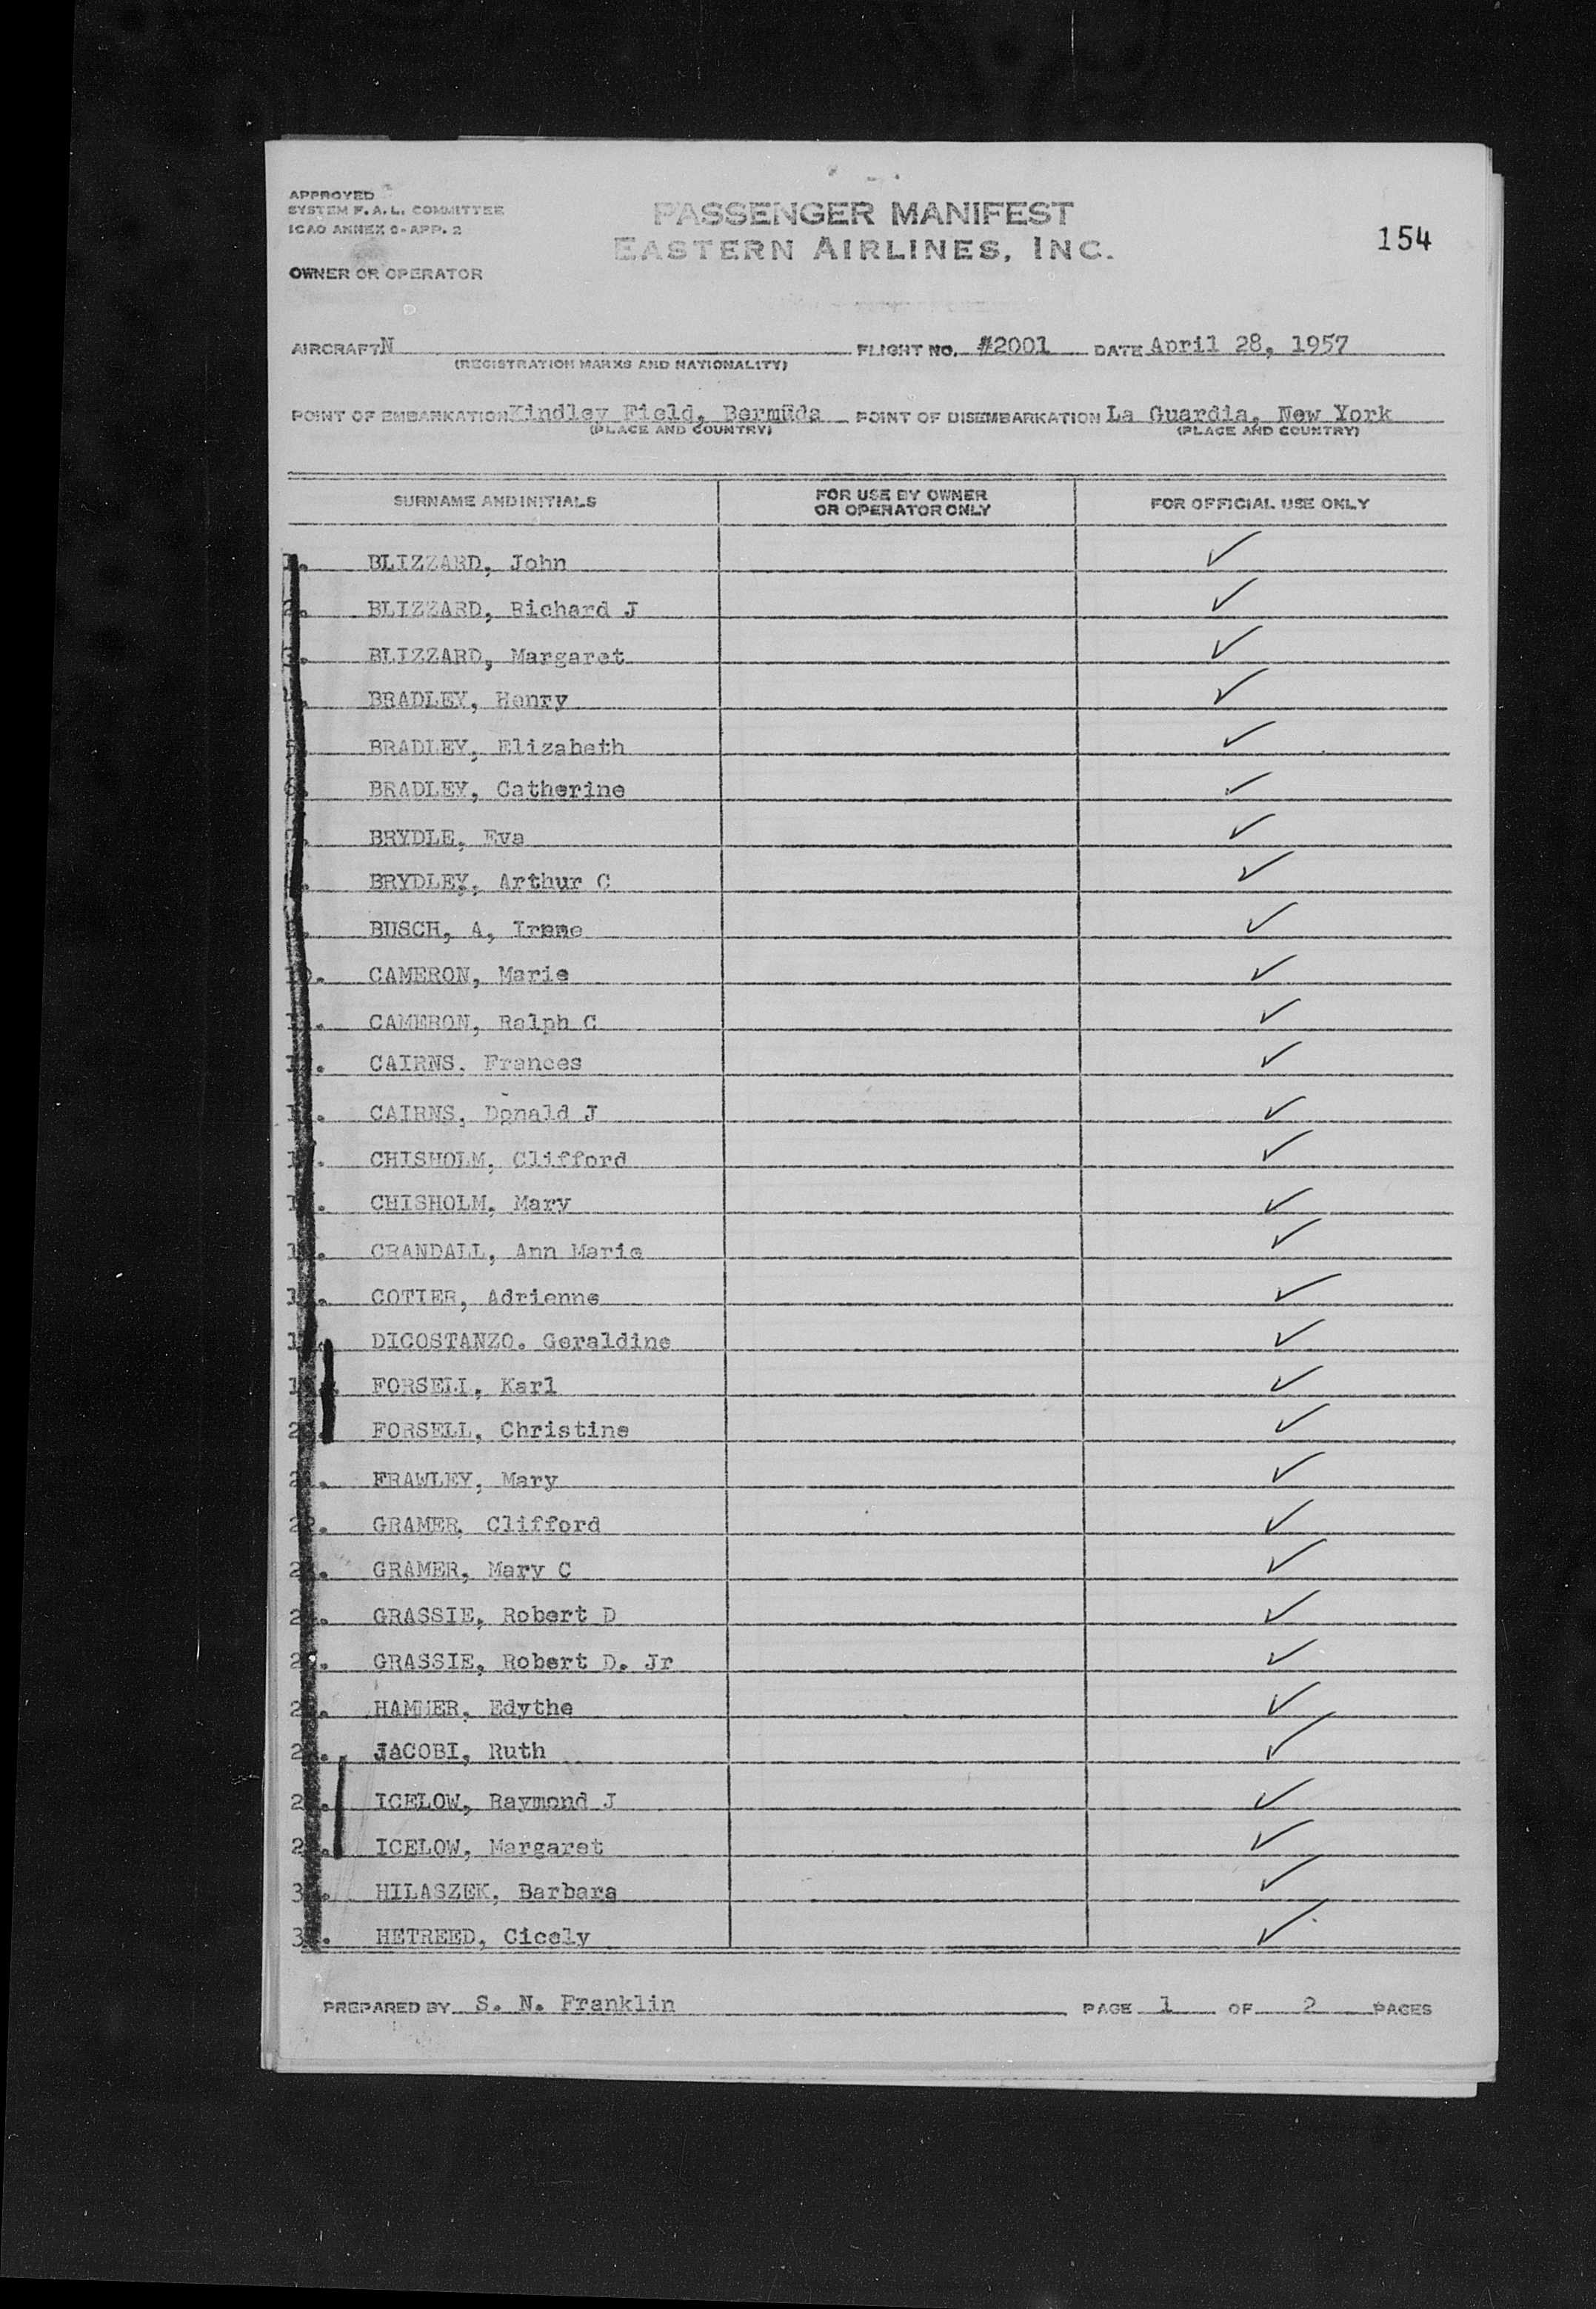 APPROVED
SYSTEM F.A.L. COMMITTEE
ICAO ANNEX 9-APP. 2
PASSENGER MANIFEST
EASTERN AIRLINES, INC.
154
OWNER OR OPERATOR
AIRCRAFT N FLIGHT NO. #2001 DATE April 28, 1957
(REGISTRATION MARKS AND NATIONALITY)
POINT OF EMBARKATION Kindley Field, Bermuda POINT OF DISEMBARKATION La Guardia, New York
(PLACE AND COUNTRY) (PLACE AND COUNTRY)
SURNAME AND INITIALS FOR USE BY OWNER OR OPERATOR ONLY FOR OFFICIAL USE ONLY
BLIZZARD, John ✓
BLIZZARD, Richard J ✓
BLIZZARD, Margaret ✓
BRADLEY, Henry ✓
BRADLEY, Elizabeth ✓
BRADLEY, Catherine ✓
BRYDLE, Eva ✓
BRYDLEY, Arthur C ✓
BUSCH, A, Irene ✓
10. CAMERON, Marie ✓
CAMERON, Ralph C ✓
CAIRNS, Frances ✓
CAIRNS, Donald J ✓
CHISHOLM, Clifford ✓
CHISHOLM, Mary ✓
CRANDALL, Ann Marie ✓
COTIER, Adrienne ✓
DICOSTANZO. Geraldine ✓
FORSELL, Karl ✓
FORSELL, Christine ✓
FRAWLEY, Mary ✓
GRAMER, Clifford ✓
GRAMER, Mary C ✓
GRASSIE, Robert D ✓
GRASSIE, Robert D. Jr ✓
HAMMER, Edythe ✓
JaCOBI, Ruth ✓
ICELOW, Raymond J ✓
ICELOW, Margaret ✓
HILASZEK, Barbara ✓
HETREED, Cicely ✓
PREPARED BY S. N. Franklin PAGE 1 OF 2 PAGES